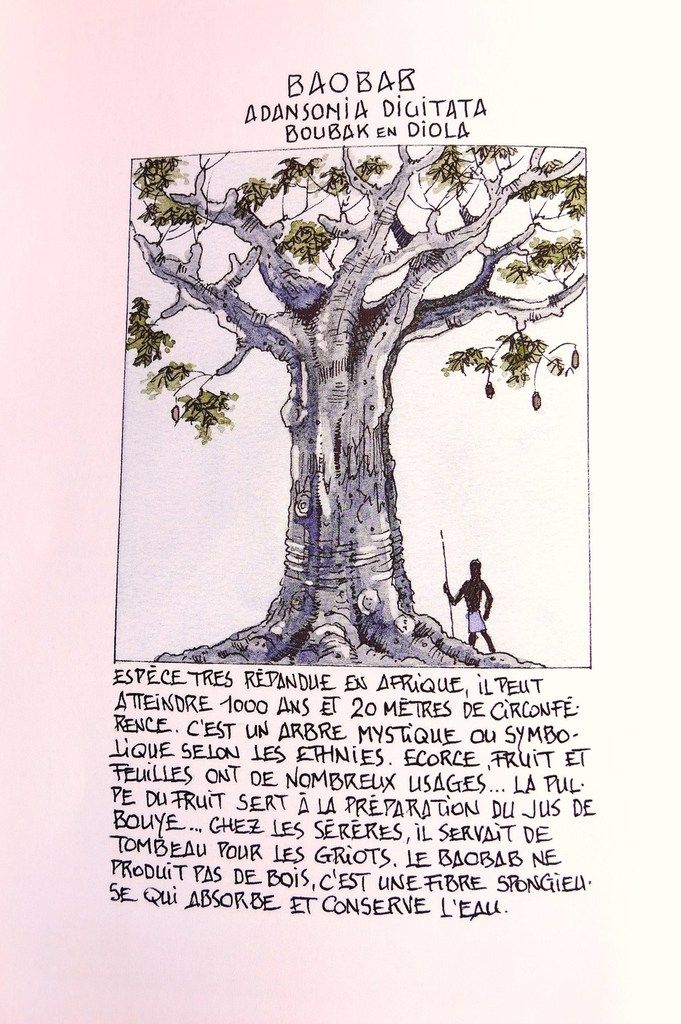 BAOBAB
ADANSONIA DIGITATA
BOUBAK EN DIOLA
ESPÈCE TRES RÉPANDUE EN AFRIQUE, IL PEUT
ATTEINDRE 1000 ANS ET 20 MÈTRES DE CIRCONFÉ-
RENCE. C'EST UN ARBRE MYSTIQUE OU SYMBO-
LIQUE SELON LES ETHNIES. ECORCE, FRUIT ET
FEUILLES ONT DE NOMBREUX USAGES... LA PUL-
PE DU FRUIT SERT À LA PRÉPARATION DU JUS DE
BOUYE... CHEZ LES SÉRÈRES, IL SERVAIT DE
TOMBEAU POUR LES GRIOTS. LE BAOBAB NE
PRODUIT PAS DE BOIS, C'EST UNE FIBRE SPONGIEU-
SE QUI ABSORBE ET CONSERVE L'EAU.